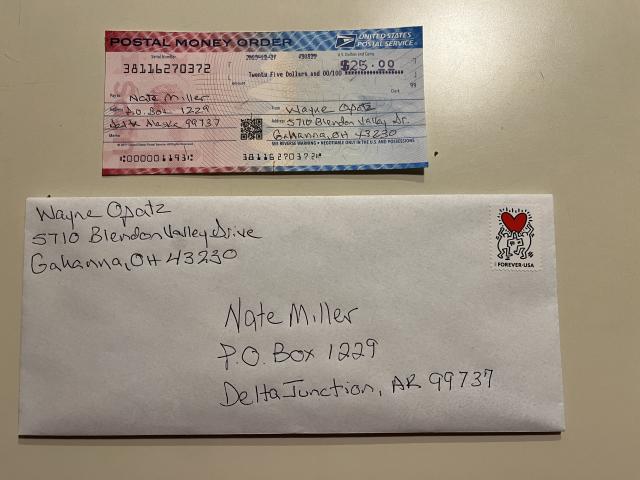 POSTAL MONEY ORDER
UNITED STATES
POSTAL SERVICE
Serial Number
U.S. Dollars and Cents
38116270372
$25.00
Amount
Twenty Five Dollars and 00/100
Pay to Nate Miller
Address P.O. Box 1229
Delta Alaska 99737
Memo
From Wayne Opatz
Address 5710 Blendon Valley Dr.
Gahanna, OH 43230
Clerk
SEE REVERSE WARNING • NEGOTIABLE ONLY IN THE U.S. AND POSSESSIONS
38116270372
Wayne Opatz
5710 Blendon Valley Drive
Gahanna, OH 43230
FOREVER-USA
Nate Miller
P.O. Box 1229
Delta Junction, AR 99737